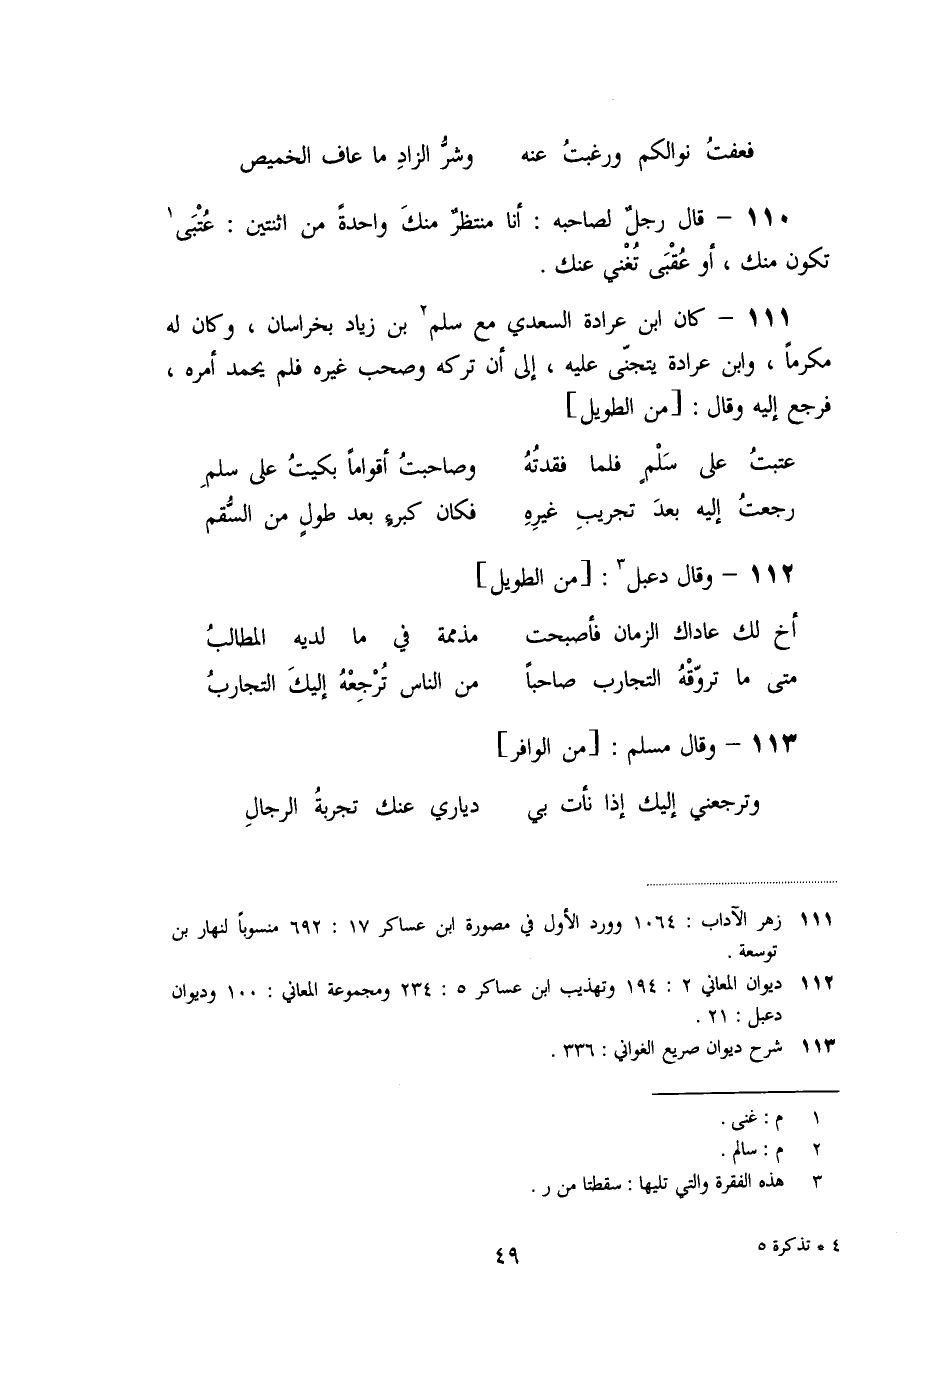 فعفتُ نوالكم ورغبتُ عنه وشرُّ الزادِ ما عاف الخميص
١١٠ – قال رجلٌ لصاحبه : أنا منتظرٌ منكَ واحدةً من اثنتين : عُتْبَى١
تكون منك ، أو عُقْبَى تُغْني عنك .
١١١ – كان ابن عرادة السعدي مع سلم٢ بن زياد بخراسان ، وكان له
مكرماً ، وابن عرادة يتجنّى عليه ، إلى أن تركه وصحب غيره فلم يحمد أمره ،
فرجع إليه وقال : [من الطويل]
عتبتُ على سَلْمٍ فلما فقدتُهُ وصاحبتُ أقواماً بكيتُ على سلمِ
رجعتُ إليه بعدَ تجريبِ غيرِهِ فكان كبرءٍ بعد طولٍ من السُّقم
١١٢ – وقال دعبل٣ : [من الطويل]
أخ لك عاداك الزمان فأصبحت مذممة في ما لديه المطالبُ
متى ما تروّقْهُ التجارب صاحباً من الناس تُرْجِعْهُ إليكَ التجاربُ
١١٣ – وقال مسلم : [من الوافر]
وترجعني إليك إذا نأت بي دياري عنك تجربةُ الرجالِ
١١١ زهر الآداب : ١٠٦٤ وورد الأول في مصورة ابن عساكر ١٧ : ٦٩٢ منسوباً لنهار بن
توسعة .
١١٢ ديوان المعاني ٢ : ١٩٤ وتهذيب ابن عساكر ٥ : ٢٣٤ ومجموعة المعاني : ١٠٠ وديوان
دعبل : ٢١ .
١١٣ شرح ديوان صريع الغواني : ٣٣٦ .
١ م : غنى .
٢ م : سالم .
٣ هذه الفقرة والتي تليها : سقطتا من ر .
٤ * تذكرة ٥
٤٩